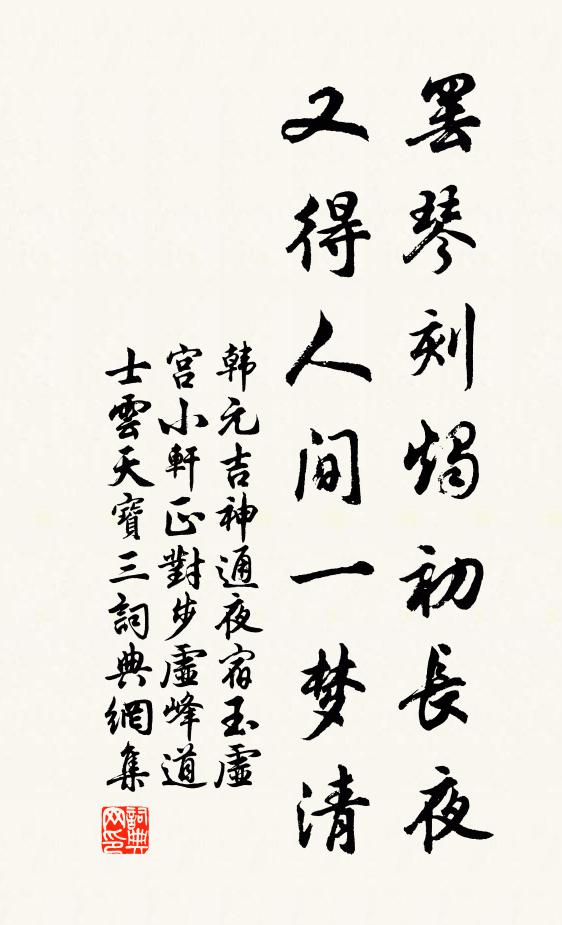 罢琴刻燭初長夜
又得人间一梦清
韩元吉神通夜宿玉虚
宫小軒正對步虚峰道
士雲天寶三詞典網集
詞典网印